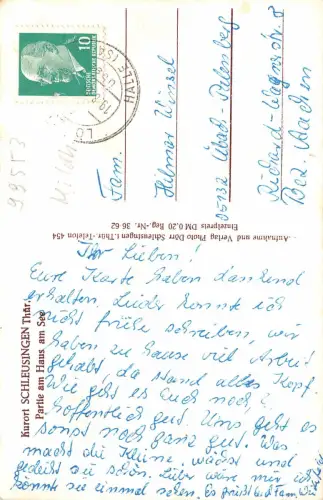 Ihr Lieben!
Eure Karte haben dankend
erhalten. Leider konnte ich
nicht frühe schreiben, wir
haben zu Hause viel Arbeit
gehabt, da stand alles Kopf.
Wie geht es Euch noch?
Hoffentlich gut. Uns geht es
sonst noch ganz gut. Was
macht die Kleine, wächst und
gedeiht sie schön. Lieber wäre mir ich
könnte sie einmal sehen. Es grüßt Fam.
Fam.
Helmar Winzel
05132 Übach-Palenberg
Richard-Wagnerstr. 8
Bez. Aachen
10
DEUTSCHE
DEMOKRATISCHE REPUBLIK
HALLE (SAALE)
99553
Aufnahme und Verlag Photo Dörr Schleusingen i. Thür.-Telefon 454
Einzelpreis DM 0,20 Reg.-Nr. 36-62
Kurort SCHLEUSINGEN Thür.
Partie am Haus am See